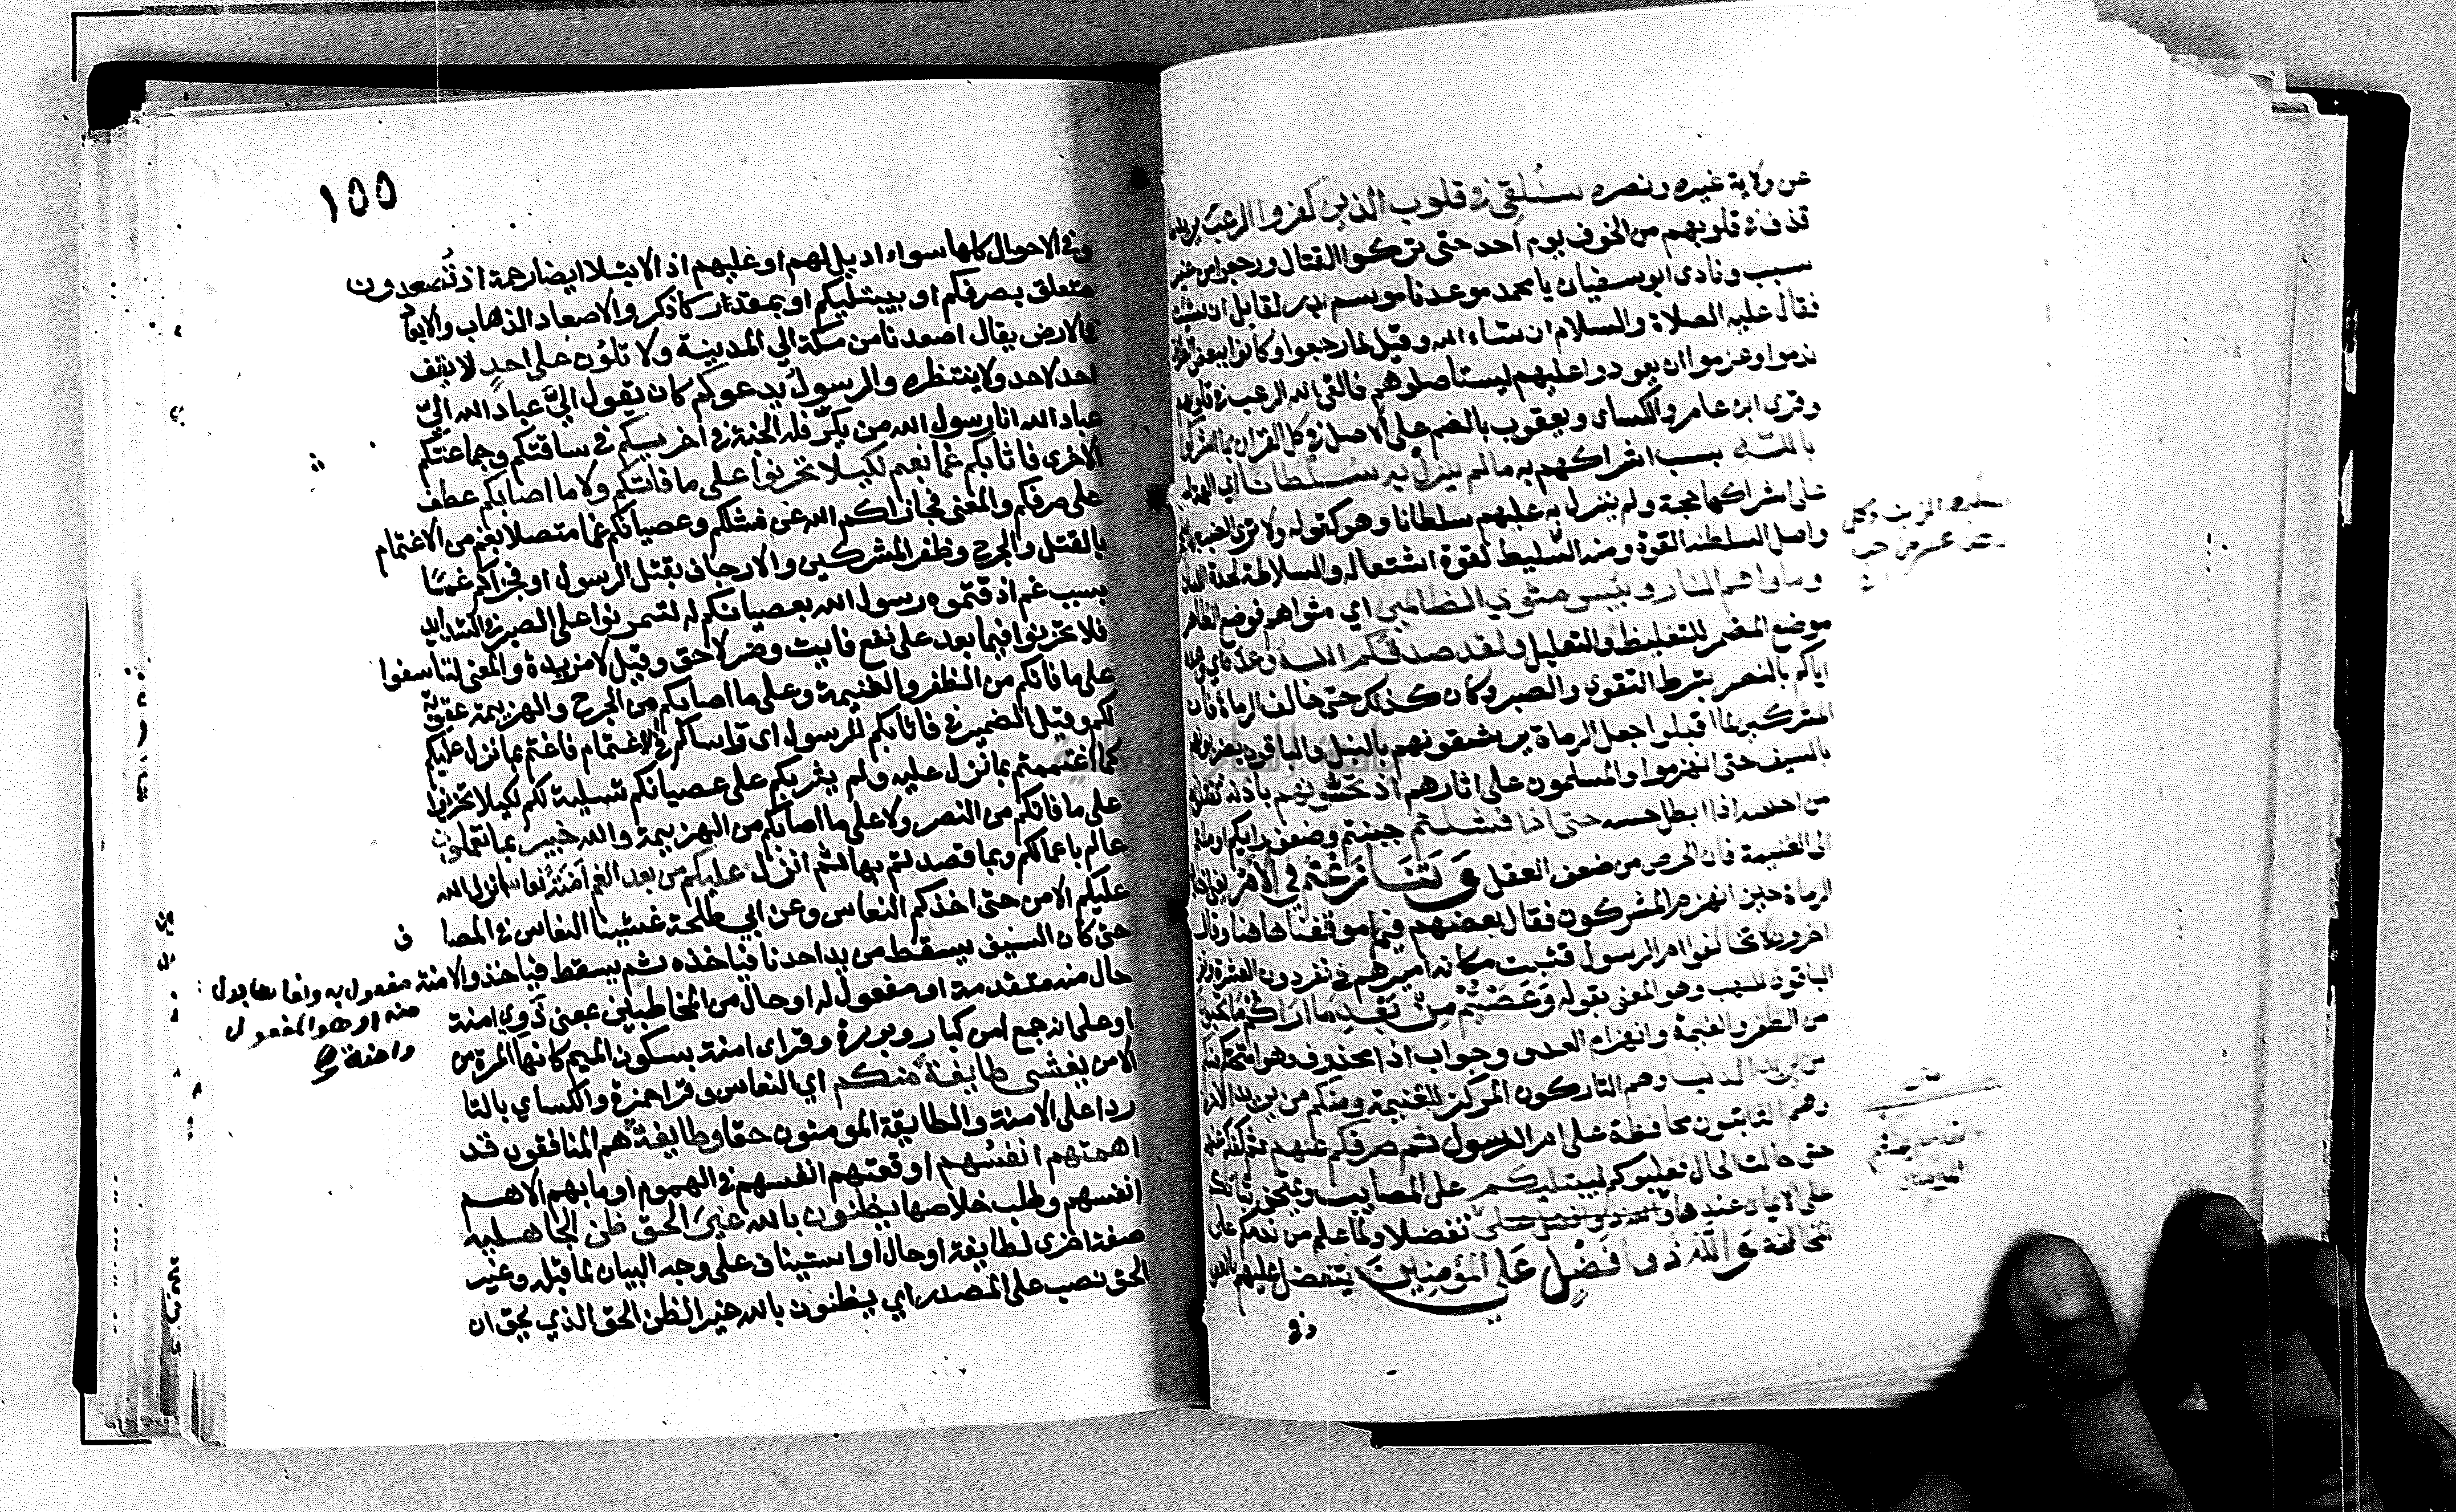 عن ولاية غيره ونصره سنلقى فى قلوب الذين كفروا الرعب يريد ما
قذف فى قلوبهم من الخوف يوم احد حتى تركوا القتال ورجعوا من غير
سبب ونادى ابو سفيان يا محمد موعدنا موسم بدر لقابل ان شئت
فقال عليه الصلاة والسلام ان شاء الله وقيل لما رجعوا وكانوا ببعض
ندموا وعزموا ان يعودوا عليهم ليستاصلوهم فالقى الله الرعب فى قلوبهم
وقرى ابن عامر والكساى ويعقوب بالضم على الاصل فى كل القران بما اشركوا
بالله بسبب اشراكهم به ما لم ينزل به سلطانا اي الهة
على اشراكها حجة ولم ينزل به عليهم سلطانا وهو كقوله ولا ترى الضب
واصل السلطنة القوة ومنه السليط لقوة اشتعاله والسلاطة لحدة اللسان
وماواهم النار وبئس مثوي الظالمين اي مثواهم فوضع الظاهر
موضع المضمر للتغليظ والتعليل ولقد صدقكم الله وعده اي وعده
اياكم بالنصر بشرط التقوى والصبر وكان كذلك حتى خالف الرماة فان
المشركين لما اقبلوا جعل الرماة يرشقونهم بالنبل والباقون يضربونهم
بالسيف حتى انهزموا والمسلمون على اثارهم اذ تحسونهم باذنه تقتلونهم
من احسه اذا ابطل حسه حتى اذا فشلتم جبنتم وضعف رايكم او ملتم
الى الغنيمة فان الحرص من ضعف العقل وتنازعتم في الامر يعنى اختلاف
الرماة حين انهزم المشركون فقال بعضهم فما موقفنا هاهنا وقال
اخرون لا تخالفوا امر الرسول فثبت مكانه اميرهم فى نفر دون العشرة ونفر
الباقون للنهب وهو المعنى بقوله وعصيتم من بعد ما اراكم ما تحبون
من الظفر والغنيمة وانهزام العدو وجواب اذا محذوف وهو امتحنكم منكم
من يريد الدنيا وهم التاركون المركز للغنيمة ومنكم من يريد الاخرة
وهم الثابتون محافظة على امر الرسول ثم صرفكم عنهم ثم كفكم عنهم
حتى حالت الحال فغلبوكم ليبتليكم على المصايب ويمتحن ثباتكم
على الايمان عندها تفضلا ولما علم من ندمكم على
المخالفة والله ذو فضل على المؤمنين يتفضل عليهم بالعفو
وفى
١٥٥
وفى الاحوال كلها سواء اديل لهم او عليهم اذ الابتلا ايضا رحمة اذ تصعدون
متعلق بصرفكم او بيبتليكم او بمقدار كاذكر والاصعاد الذهاب والابعاد
فى الارض يقال اصعدنا من مكة الي المدينة ولا تلؤن على احد لا يقف
احد لاحد ولا ينتظره والرسول يدعوكم كان يقول اليّ عباد الله اليّ
عباد الله انا رسول الله من يكرّ فله الجنة فى اخريكم فى ساقتكم وجماعتكم
الاخرى فاثابكم غما بغم لكيلا تحزنوا على ما فاتكم ولا ما اصابكم عطف
على صرفكم والمعنى فجازاكم الله عن فشلكم وعصيانكم غما متصلا بغم من الاغتمام
بالقتل والجرح وظفر المشركين والارجاف بقتل الرسول او فجزاكم غما
بسبب غم اذقتموه رسول الله بعصيانكم له لتتمرنوا على الصبر فى الشدايد
فلا تحزنوا فيما بعد على نفع فايت وضر لاحق وقيل لا مزيدة والمعنى لتاسفوا
على ما فاتكم من الظفر والغنيمة وعلى ما اصابكم من الجرح والهزيمة عقوبة
لكم وقيل الضمير فى فاثابكم للرسول اى فواساكم فى الاغتمام فاغتم بما نزل عليكم
كما اغتممتم بما نزل عليه ولم يثربكم على عصيانكم تسلية لكم لكيلا تحزنوا
على ما فاتكم من النصر ولا على ما اصابكم من الهزيمة والله خبير بما تعملون
عالم باعمالكم وبما قصدتم بها ثم انزل عليكم من بعد الغم امنة نعاسا انزل الله
عليكم الامن حتى اخذكم النعاس وعن ابي طلحة غشينا النعاس فى المصاف
حتى كان السيف يسقط من يد احدنا فياخذه ثم يسقط فياخذه والامنة مفعول به ونعاسا بدل
منه او هو المفعول
وامنة
حال منه متقدمة او مفعول له او حال من المخاطبين بمعنى ذوي امنة
او على انه جمع امن كبار وبررة وقراى امنة بسكون الميم كانها المرة من
الامن يغشى طايفة منكم اي النعاس وقرا حمزة والكساي بالتا
ردا على الامنة والطايفة المومنون حقا وطايفة هم المنافقون قد
اهمتهم انفسهم اوقعتهم انفسهم فى الهموم او ما بهم الا هم
انفسهم وطلب خلاصها يظنون بالله غير الحق ظن الجاهلية
صفة اخرى لطايفة او حال او استيناف على وجه البيان لما قبله وغير
الحق نصب على المصدر اي يظنون بالله غير الظن الحق الذي يحق ان